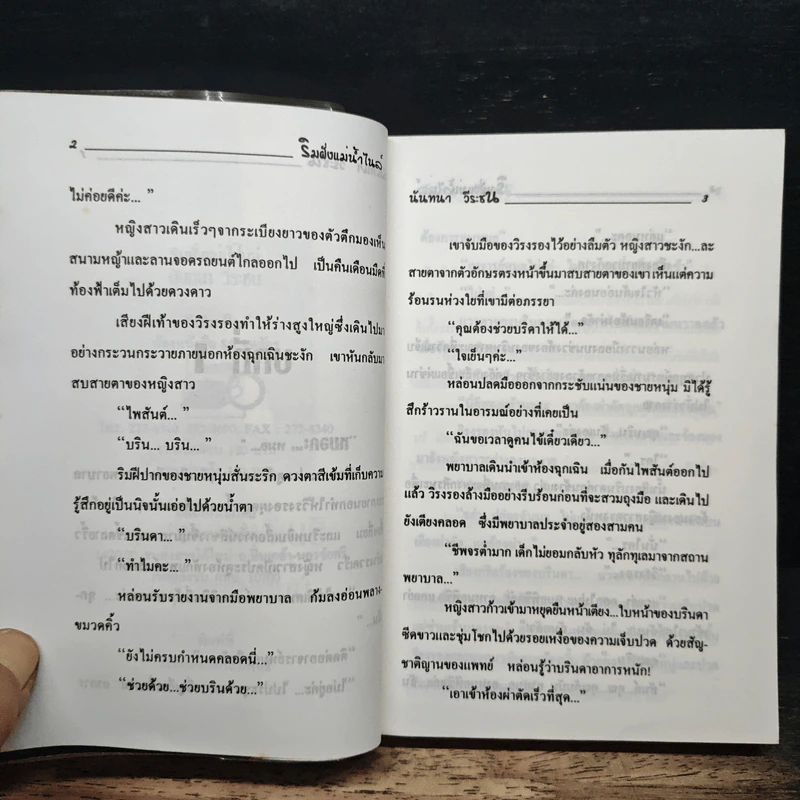 2 ริมฝั่งแม่น้ำไนล์
ไม่ค่อยดีค่ะ... ”
หญิงสาวเดินเร็วๆจากระเบียงยาวของตัวตึกมองเห็น
สนามหญ้าและลานจอดรถยนต์ไกลออกไป เป็นคืนเดือนมืดที่
ท้องฟ้าเต็มไปด้วยดวงดาว
เสียงฝีเท้าของวิรงรองทำให้ร่างสูงใหญ่ซึ่งเดินไปมา
อย่างกระวนกระวายภายนอกห้องฉุกเฉินชะงัก เขาหันกลับมา
สบสายตาของหญิงสาว
“ไพสันต์... ”
“บริน... บริน... ”
ริมฝีปากของชายหนุ่มสั่นระริก ดวงตาสีเข้มที่เก็บความ
รู้สึกอยู่เป็นนิจนั้นเอ่อไปด้วยน้ำตา
“บรินดา... ”
“ทำไมคะ... ”
หล่อนรับรายงานจากมือพยาบาล ก้มลงอ่อนพลาง-
ขมวดคิ้ว
“ยังไม่ครบกำหนดคลอดนี่...”
“ช่วยด้วย...ช่วยบรินด้วย...”
นันทนา วีระชน 3
เขาจับมือของวิรงรองไว้อย่างลืมตัว หญิงสาวชะงัก...ละ
สายตาจากตัวอักษรตรงหน้าขึ้นมาสบสายตาของเขา เห็นแต่ความ
ร้อนรนห่วงใยที่เขามีต่อภรรยา
“คุณต้องช่วยบริดาให้ได้...”
“ใจเย็นๆค่ะ...”
หล่อนปลดมือออกจากกระชับแน่นของชายหนุ่ม มิได้รู้
สึกร้าวรานในอารมณ์อย่างที่เคยเป็น
“ฉันขอเวลาดูคนไข้เดี๋ยวเดียว...”
พยาบาลเดินนำเข้าห้องฉุกเฉิน เมื่อกันไพสันต์ออกไป
แล้ว วิรงรองล้างมืออย่างรีบร้อนก่อนที่จะสวมถุงมือ และเดินไป
ยังเตียงคลอด ซึ่งมีพยาบาลประจำอยู่สองสามคน
“ชีพจรต่ำมาก เด็กไม่ยอมกลับหัว ทุลักทุเลมาจากสถาน
พยาบาล...”
หญิงสาวก้าวเข้ามาหยุดยืนหน้าเตียง...ใบหน้าของบรินดา
ซีดขาวและชุ่มโชกไปด้วยรอยเหงื่อของความเจ็บปวด ด้วยสัญ-
ชาติญานของแพทย์ หล่อนรู้ว่าบรินดาอาการหนัก!
“เอาเข้าห้องผ่าตัดเร็วที่สุด...”